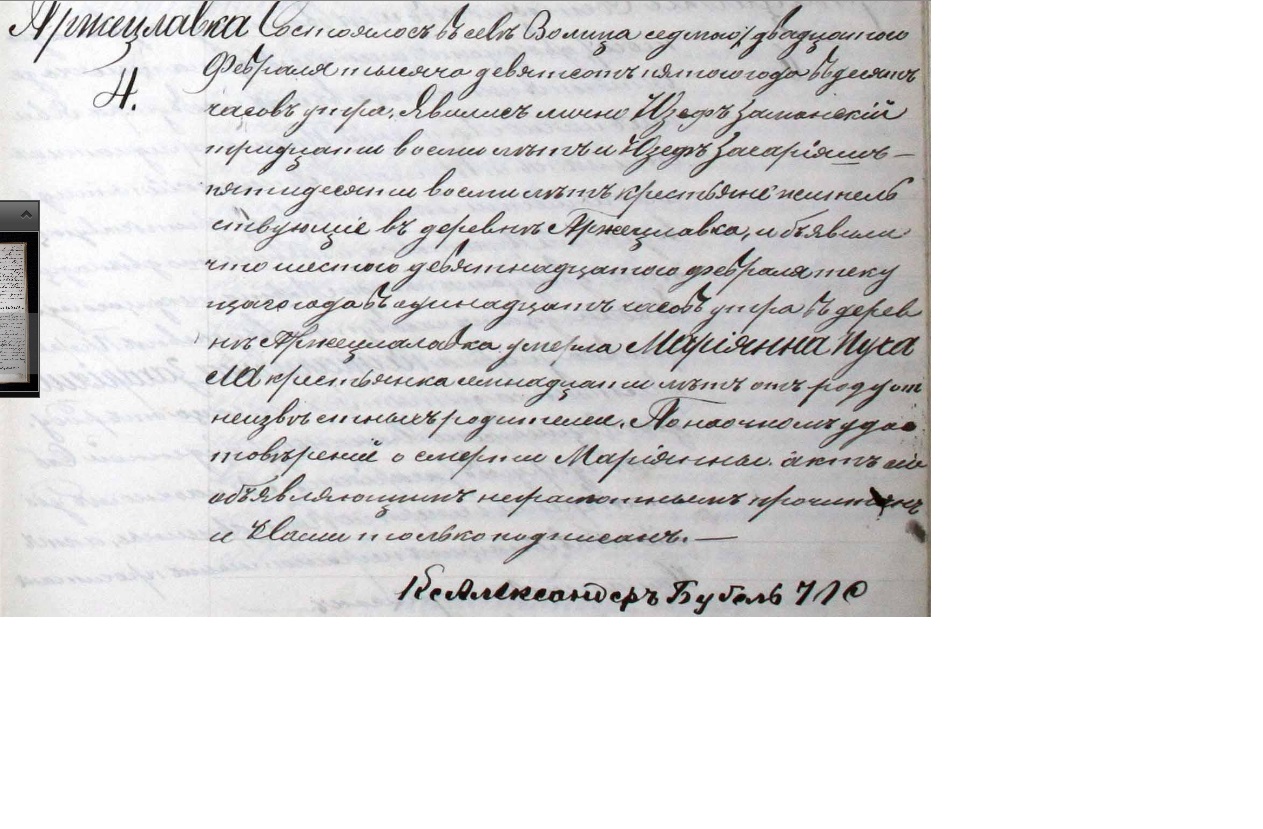 Аржецлавка Состоялось въ селѣ Волица седмого/двадцатого
Февраля тысяча девятсотъ пятого года въ десять
4.
часовъ утра. Явились лично Юзефъ Заманскій
тридцати восми лѣтъ и Юзефъ Захаріяшъ —
пятидесяти восми лѣтъ крестьяне житель
ствующіе въ деревнѣ Аржецлавка, и объявили
что шестого девятнадцатого февраля теку
щаго года въ одинадцать часовъ утра въ дерев
нѣ Аржецлавка умерла Маріянна Пуха
крестьянка семнадцати лѣтъ отъ роду от
неизвѣстныхъ родителей. По наочномъ удос
товѣреніи о смерти Маріянны. актъ сей
объявляющимъ неграмотнымъ прочитанъ
и Нами только подписанъ. —
Кс Александеръ Бубель